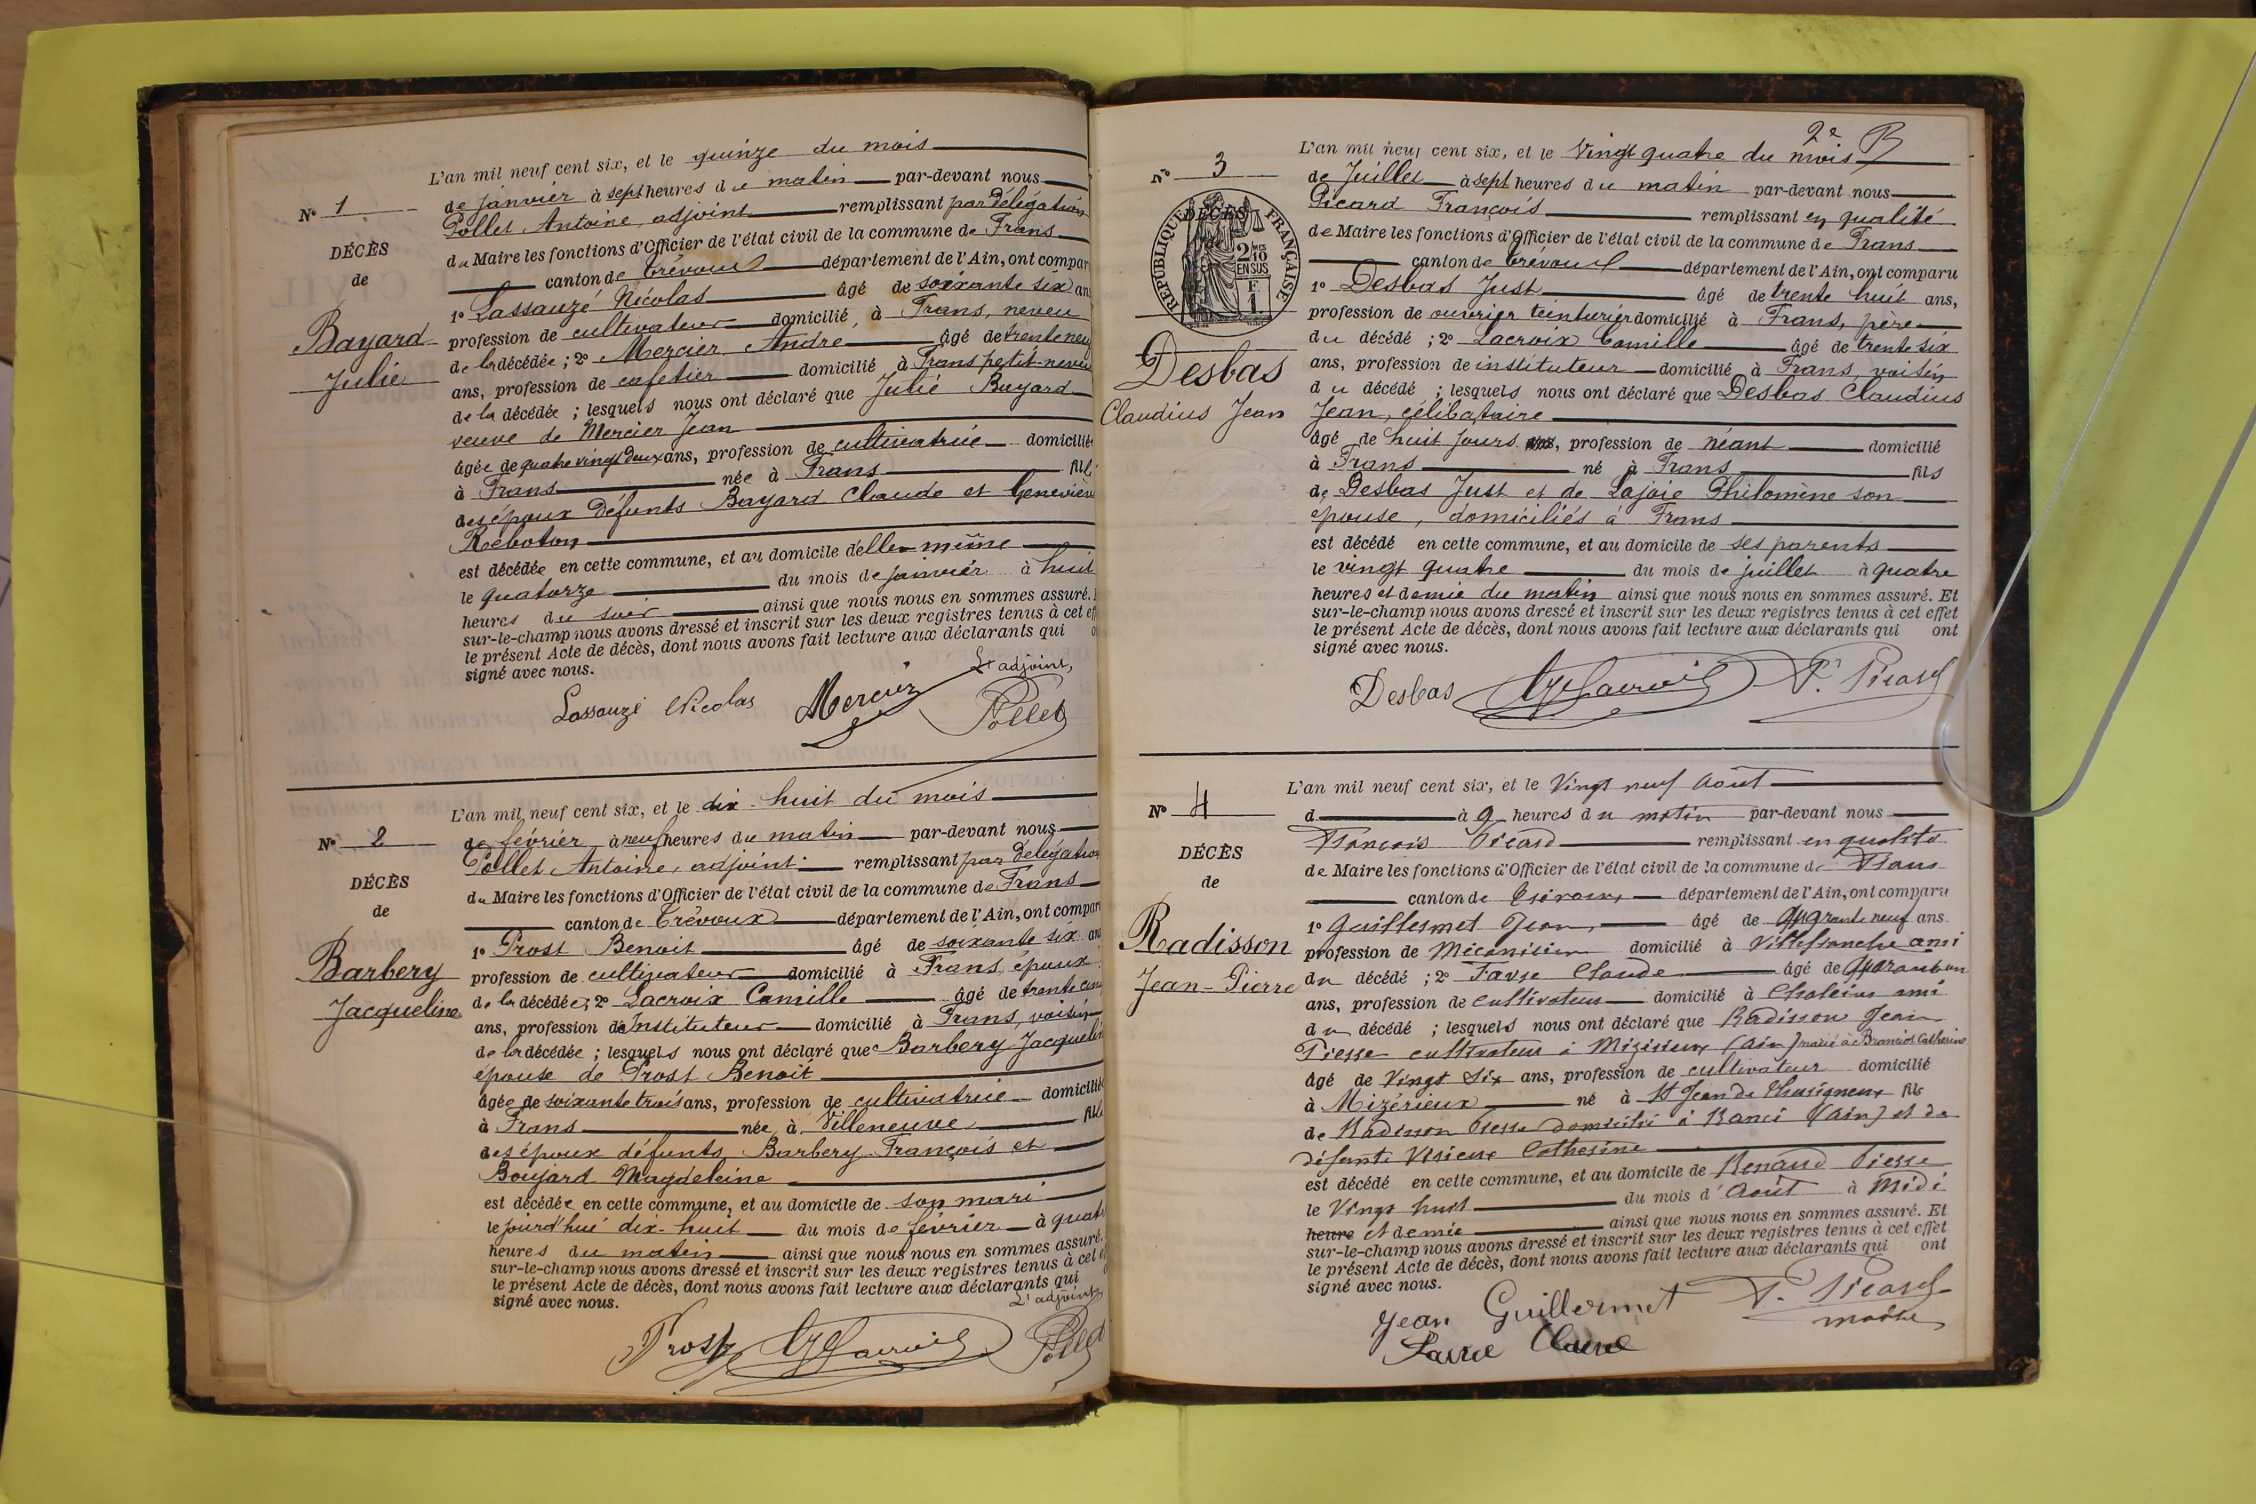 L'an mil neuf cent six, et le quinze du mois
N° 1
de janvier à sept heures du matin par-devant nous
Pollet Antoine, adjoint remplissant par Délégation
DÉCÈS
du Maire les fonctions d'Officier de l'état civil de la commune de Frans
de
canton de Trévoux département de l'Ain, ont compar
1° Lassauzé Nicolas âgé de soixante six an
Bayard
profession de cultivateur domicilié à Frans, neveu
Julie
de la décédée ; 2° Mercier André âgé de trente neu
ans, profession de cafetier domicilié à Frans petit-neveu
de la décédée ; lesquels nous ont déclaré que Julie Bayard
veuve de Mercier Jean
âgée de quatre vingt deux ans, profession de cultivatrice domicilié
à Frans née à Frans fill
des époux défunts Bayard Claude et Geneviève
Reboton
est décédée en cette commune, et au domicile d'elle-même
le quatorze du mois de janvier à huit
heures du soir ainsi que nous nous en sommes assuré.
sur-le-champ nous avons dressé et inscrit sur les deux registres tenus à cet eff
le présent Acte de décès, dont nous avons fait lecture aux déclarants qui o
signé avec nous.
L'adjoint,
Lassauzé Nicolas Mercier Pollet
L'an mil neuf cent six, et le dix-huit du mois
N° 2
de février à neuf heures du matin par-devant nous
Pollet Antoine, adjoint remplissant par Délégation
DÉCÈS
du Maire les fonctions d'Officier de l'état civil de la commune de Frans
de
canton de Trévoux département de l'Ain, ont compar
1° Prost Benoit âgé de soixante six an
Barbery
profession de cultivateur domicilié à Frans, époux
Jacqueline
de la décédée ; 2° Lacroix Camille âgé de trente cinq
ans, profession d'Instituteur domicilié à Frans, voisin
de la décédée ; lesquels nous ont déclaré que Barbery Jacquelin
épouse de Prost Benoit
âgée de soixante trois ans, profession de cultivatrice domicilié
à Frans née à Villeneuve fille
des époux défunts Barbery François et
Boujard Magdeleine
est décédée en cette commune, et au domicile de son mari
le jourd'hui dix-huit du mois de février à quatr
heures du matin ainsi que nous nous en sommes assuré.
sur-le-champ nous avons dressé et inscrit sur les deux registres tenus à cet e
le présent Acte de décès, dont nous avons fait lecture aux déclarants qui
signé avec nous.
L'adjoint
Prost Lacroix Pollet
2e
L'an mil neuf cent six, et le Vingt quatre du mois
N° 3
de Juillet à sept heures du matin par-devant nous
Picard François remplissant en qualité
DÉCÈS
RÉPUBLIQUE FRANÇAISE
2 MES
10
EN SUS
F
1
de Maire les fonctions d'Officier de l'état civil de la commune de Frans
canton de Trévoux département de l'Ain, ont comparu
1° Desbas Just âgé de trente huit ans,
profession de ouvrier teinturier domicilié à Frans, père
Desbas
du décédé ; 2° Lacroix Camille âgé de trente six
ans, profession de instituteur domicilié à Frans, voisin
du décédé ; lesquels nous ont déclaré que Desbas Claudius
Claudius Jean
Jean, célibataire
âgé de huit jours ans, profession de néant domicilié
à Frans né à Frans fils
de Desbas Just et de Lajoie Philomène son
épouse, domiciliés à Frans
est décédé en cette commune, et au domicile de ses parents
le vingt quatre du mois de juillet à quatre
heures et demie du matin ainsi que nous nous en sommes assuré. Et
sur-le-champ nous avons dressé et inscrit sur les deux registres tenus à cet effet
le présent Acte de décès, dont nous avons fait lecture aux déclarants qui ont
signé avec nous.
Desbas Lacroix F. Picard
L'an mil neuf cent six, et le Vingt neuf Août
N° 4
d à 9 heures du matin par-devant nous
François Picard remplissant en qualité
DÉCÈS
de Maire les fonctions d'Officier de l'état civil de la commune de Frans
de
canton de Trévoux département de l'Ain, ont comparu
1° Guillermet Jean, âgé de quarante neuf ans
Radisson
profession de Mécanicien domicilié à Villefranche ami
Jean-Pierre
du décédé ; 2° Favre Claude âgé de quarante un
ans, profession de cultivateur domicilié à Chaleins ami
du décédé ; lesquels nous ont déclaré que Radisson Jean
Pierre cultivateur à Mizérieux (Ain) marié à Catherine
âgé de Vingt six ans, profession de cultivateur domicilié
à Mizérieux né à St Jean de Thurigneux fils
de Radisson Pierre domicilié à Rancé (Ain) et de
défunte Catherine
est décédé en cette commune, et au domicile de Renaud Pierre
le Vingt huit du mois d'Août à Midi
heure et demie ainsi que nous nous en sommes assuré. Et
sur-le-champ nous avons dressé et inscrit sur les deux registres tenus à cet effet
le présent Acte de décès, dont nous avons fait lecture aux déclarants qui ont
signé avec nous.
Jean Guillermet F. Picard
Favre Claude